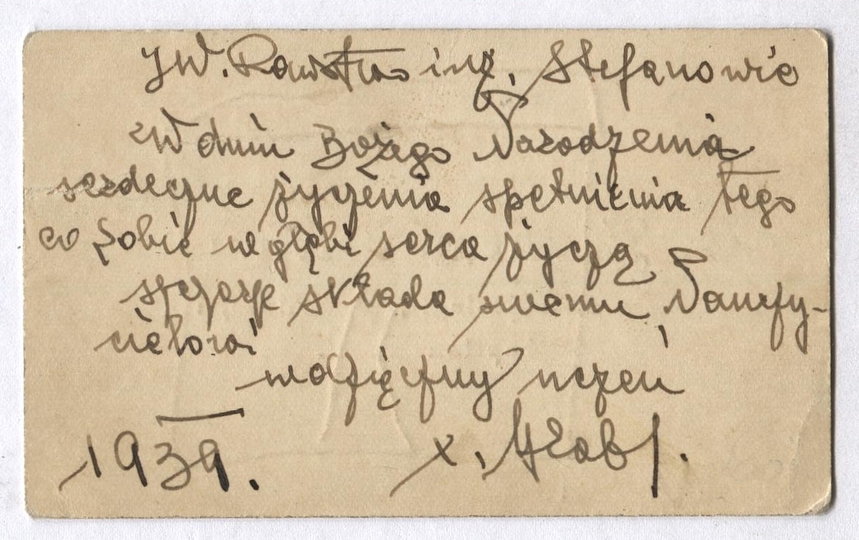 JW. Państwo inż. Stefanowie
W dniu Bożego Narodzenia
serdeczne życzenia spełnienia tego
co Sobie w głębi serca życzą
szczerze składa swemu Nauczy-
cielowi
wdzięczny uczeń
1939. x.